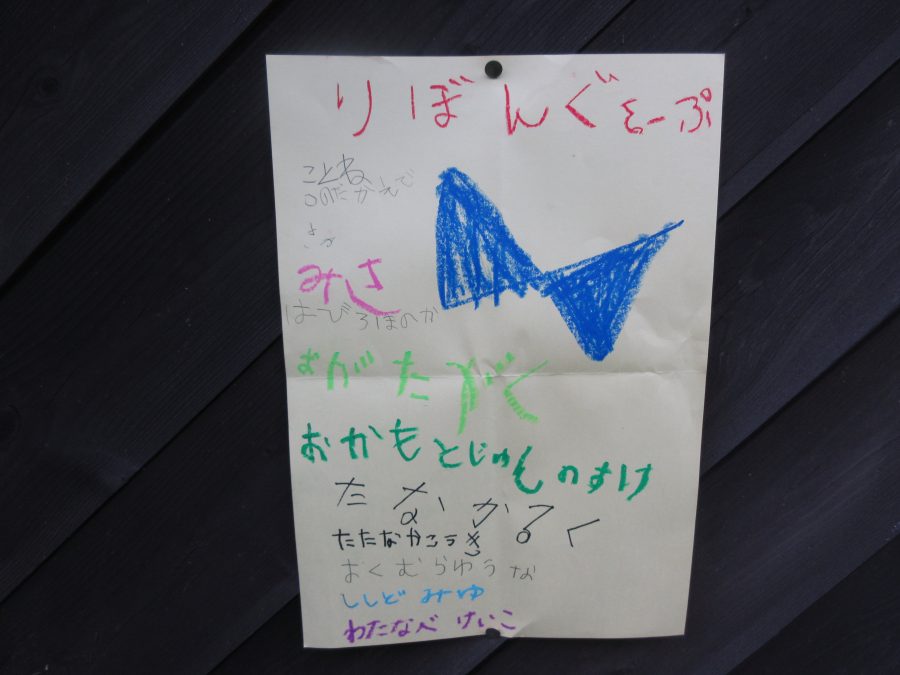 りぼんぐるーぷ
ことね
のだかえで
みさ
はびろほのか
おがたがく
おかもとじゅんのすけ
たなかるく
たたなかこうき
おくむらゆうな
ししどみゆ
わたなべけいこ